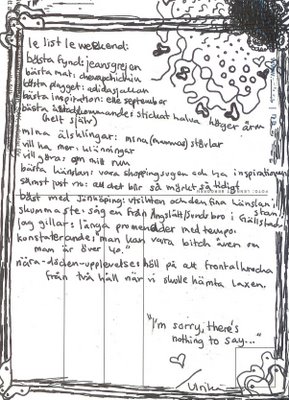 le list le weekend:
bästa fynd: jeansgrejen
bästa mat:
bästa plagget: adidasjackan
bästa inspiration: elle september
bästa återkommandes stickat halva höger ärm
(helt själv)
mina älsklingar: mina (mammas) stövlar
vill ha mer: klänningar
vill göra: om mitt rum
bästa känslan: vara shoppingsugen och ha inspiration
sämst just nu: att det blir så mörkt så tidigt
bäst med Jönköping: utsikten och den fina känslan i stan
skummaste: säng en från Ängslätt/Sundsbro i Gällstad
jag gillar: långa promenader med tempo.
konstaterande: "man kan vara bitch även om
man är över 40."
nära-döden-upplevelse: höll på att frontalkrocka
från två håll när vi skulle hämta laxen.
"I'm sorry, there's
nothing to say..."
Ulrika